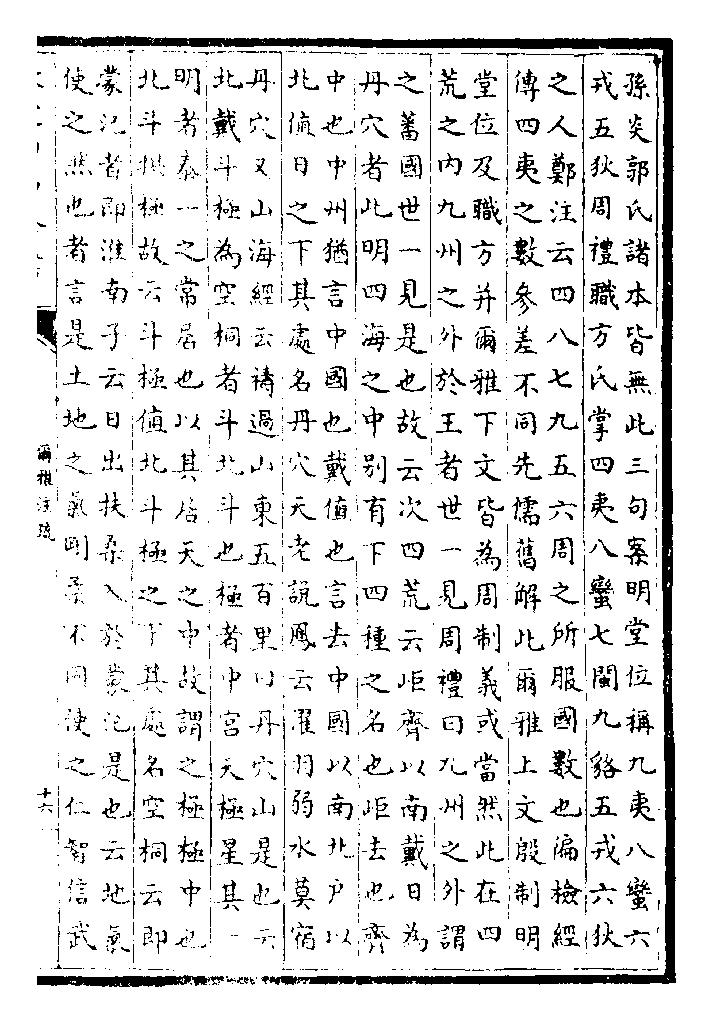 孫炎郭氏諸本皆無此三句案明堂位稱九夷八蠻六
戎五狄周禮職方氏掌四夷八蠻七閩九貉五戎六狄
之人鄭注云四八七九五六周之所服國數也偏檢經
傳四夷之數參差不同先儒舊解此爾雅上文殷制明
堂位及職方并爾雅下文皆為周制義或當然此在四
荒之內九州之外於王者世一見周禮曰九州之外謂
之蕃國世一見是也故云次四荒云岠齊以南戴日為
丹穴者此明四海之中別有下四種之名也岠去也齊
中也中州猶言中國也戴值也言去中國以南北户以
北值日之下其處名丹穴天老說鳳云濯羽弱水莫宿
丹穴又山海經云禱過山東五百里曰丹穴山是也云
北戴斗極為空桐者斗北斗也極者中宮天極星其一
明者泰一之常居也以其居天之中故謂之極極中也
北斗拱極故云斗極值北斗極之下其處名空桐云即
蒙汜者即淮南子云日出扶桑入於蒙汜是也云地氣
使之然也者言是土地之氣剛柔不同使之仁智信武
爾雅注疏
十六